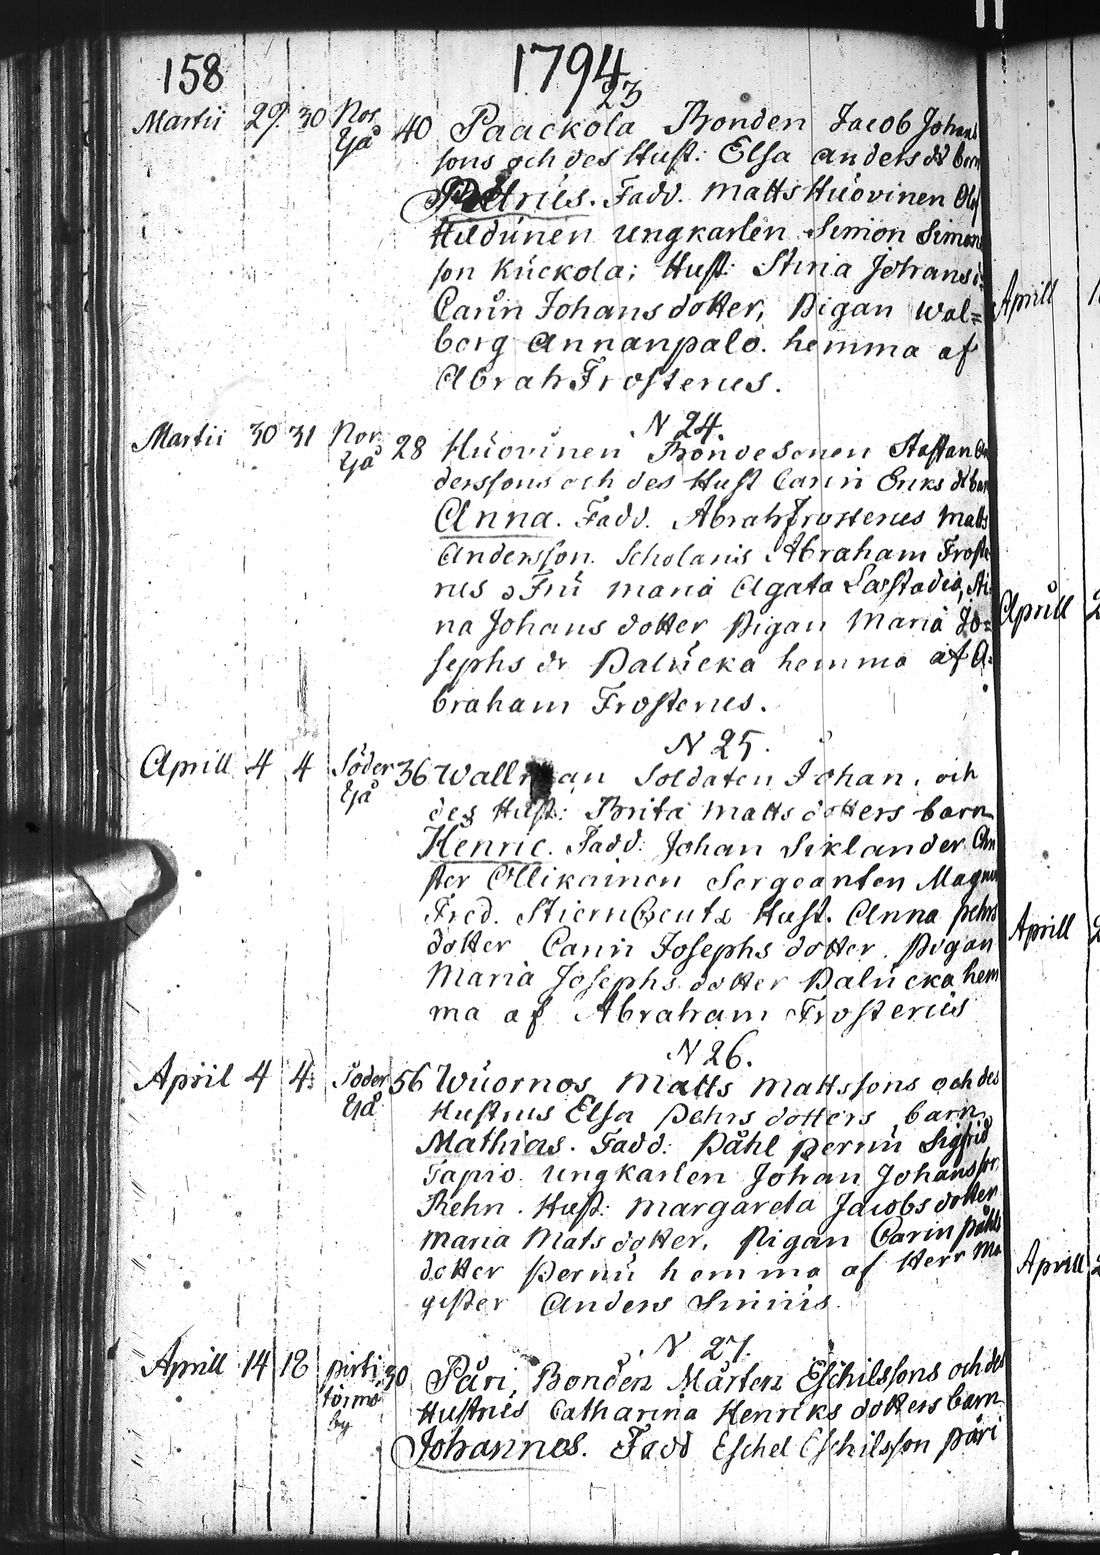 158
1794
23
Martii 29. 30 Nor Ijå 40 Paackola Bonden Jacob Johans
sons och des Hust: Elsa anders dr barn
Petrus. Fadd. Matts Huovinen Olof
Huldunen ungkarlen Simon Simon
son Kuckola; Hust: Stina Johans d:
Carin Johans dotter, Pigan Wal=
borg Annanpalo. hemma af
Abrah Frosterus.
N 24.
Martii 30 31 Nor Ijå 28 Huovinen Bondesonen Staffan An
derssons och des Hust Carin Eriks dr barn
Anna. Fadd. Abrah Frosterus Matts
Andersson. Scholaris Abraham Froste
rus Fru Maria Agata Læstadia, Sti
na Johans dotter Pigan Maria Jo=
sephs dr Palucka hemma af A=
braham Frosterus.
N 25.
Aprill 4 4 Söder Ijå 36 Wallman Soldaten Johan, och
des Hust: Brita Matts dotters barn
Henric. Fadd: Johan Siklander Chri
ster Ollikainen Sergeanten Magnus
Fred. Stierncreutz Hust. Anna Pehrs
dotter Carin Josephs dotter. Pigan
Maria Josephs dotter Palucka hem
ma af Abraham Frosterus
N 26.
April 4 4 Söder Ijå 56 Wuornos Matts Mattssons och des
Hustrus Elsa Pehrs dotters barn
Mathias. Fadd: Påhl Pernu Sigfrid
Tapio. ungkarlen Johan Johansson
Rehn. Hust: Margareta Jacobs dotter
Maria Mats dotter, Pigan Carin Påhls
dotter Pernu hemma af Herr Ma
gister Anders Simiis.
N 27.
Aprill 14 18 Pirti toimö by 30 Päri, Bonden Mårten Eschilssons och des
Hustrus Catharina Henriks dotters barn
Johannes. Fadd Eschel Eschilsson Päri
Aprill
April
Aprill
Aprill